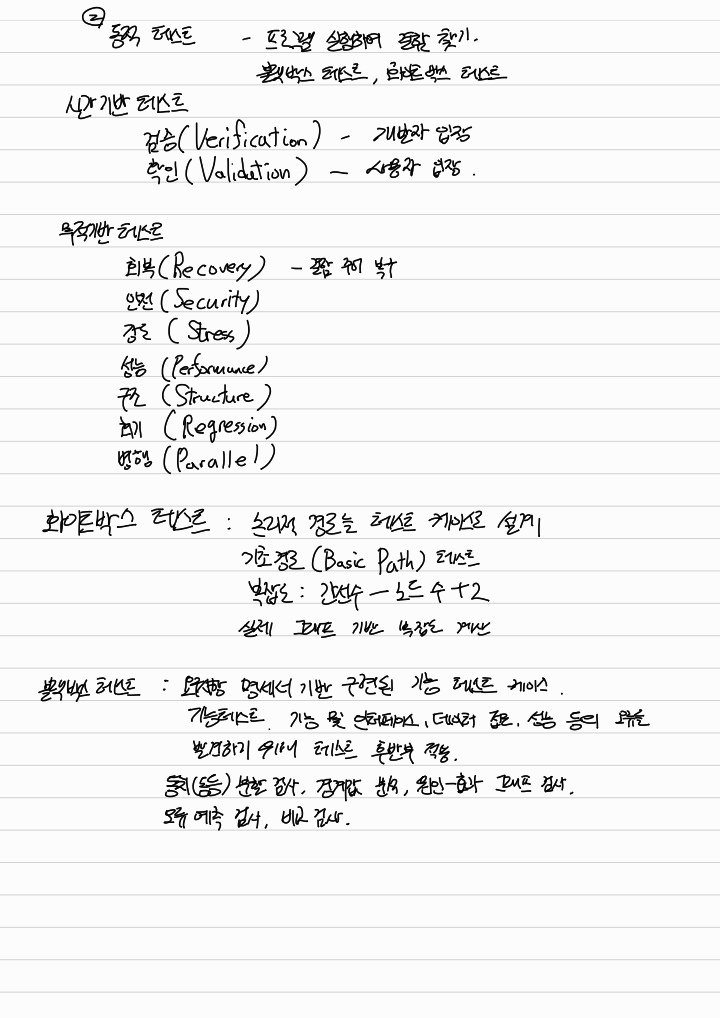 ② 동적 테스트 - 프로그램 실행하여 결함 찾기.
블랙박스 테스트, 화이트박스 테스트
시간기반 테스트
검증(Verification) - 개발자 입장
확인(Validation) - 사용자 입장.
목적기반 테스트
회복(Recovery) - 결함 주어 복구
안전(Security)
강도 (Stress)
성능 (Performance)
구조 (Structure)
회귀 (Regression)
병행 (Parallel)
화이트박스 테스트 : 논리적 경로를 테스트 케이스로 설계
기초경로(Basic Path) 테스트
복잡도 : 간선수 - 노드 수 + 2
실제 그래프 기반 복잡도 계산
블랙박스 테스트 : 요구사항 명세서 기반 구현된 기능 테스트 케이스.
기능테스트. 기능 및 인터페이스, 데이터 접근, 성능 등의 오류를
발견하기 위해 테스트 후반부 적용.
동치(동등) 분할 검사, 경계값 분석, 원인-효과 그래프 검사.
오류 예측 검사, 비교 검사.